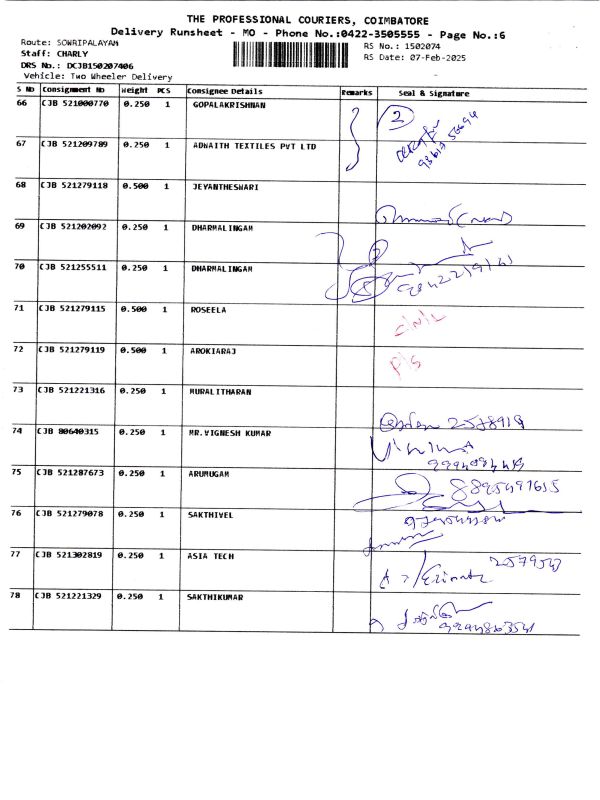 THE PROFESSIONAL COURIERS, COIMBATORE
Delivery Runsheet - MO - Phone No.:0422-3505555 - Page No.:6
Route: SOWRIPALAYAM
RS No.: 1502074
Staff: CHARLY
RS Date: 07-Feb-2025
DRS No.: DCJB150207406
Vehicle: Two Wheeler Delivery
S No Consignment No Weight PCS Consignee Details Remarks Seal & Signature
66 CJB 521000770 0.250 1 GOPALAKRISHNAN 2
67 CJB 521209789 0.250 1 ADWAITH TEXTILES PVT LTD
68 CJB 521279118 0.500 1 JEYANTHESWARI
69 CJB 521202092 0.250 1 DHARMALINGAM
70 CJB 521255511 0.250 1 DHARMALINGAM
71 CJB 521279115 0.500 1 ROSEELA
72 CJB 521279119 0.500 1 AROKIARAJ P/S
73 CJB 521221316 0.250 1 MURALITHARAN 2578919
74 CJB 80640315 0.250 1 MR.VIGNESH KUMAR
75 CJB 521287673 0.250 1 ARUMUGAM 8895491615
76 CJB 521279078 0.250 1 SAKTHIVEL
77 CJB 521302819 0.250 1 ASIA TECH
78 CJB 521221329 0.250 1 SAKTHIKUMAR